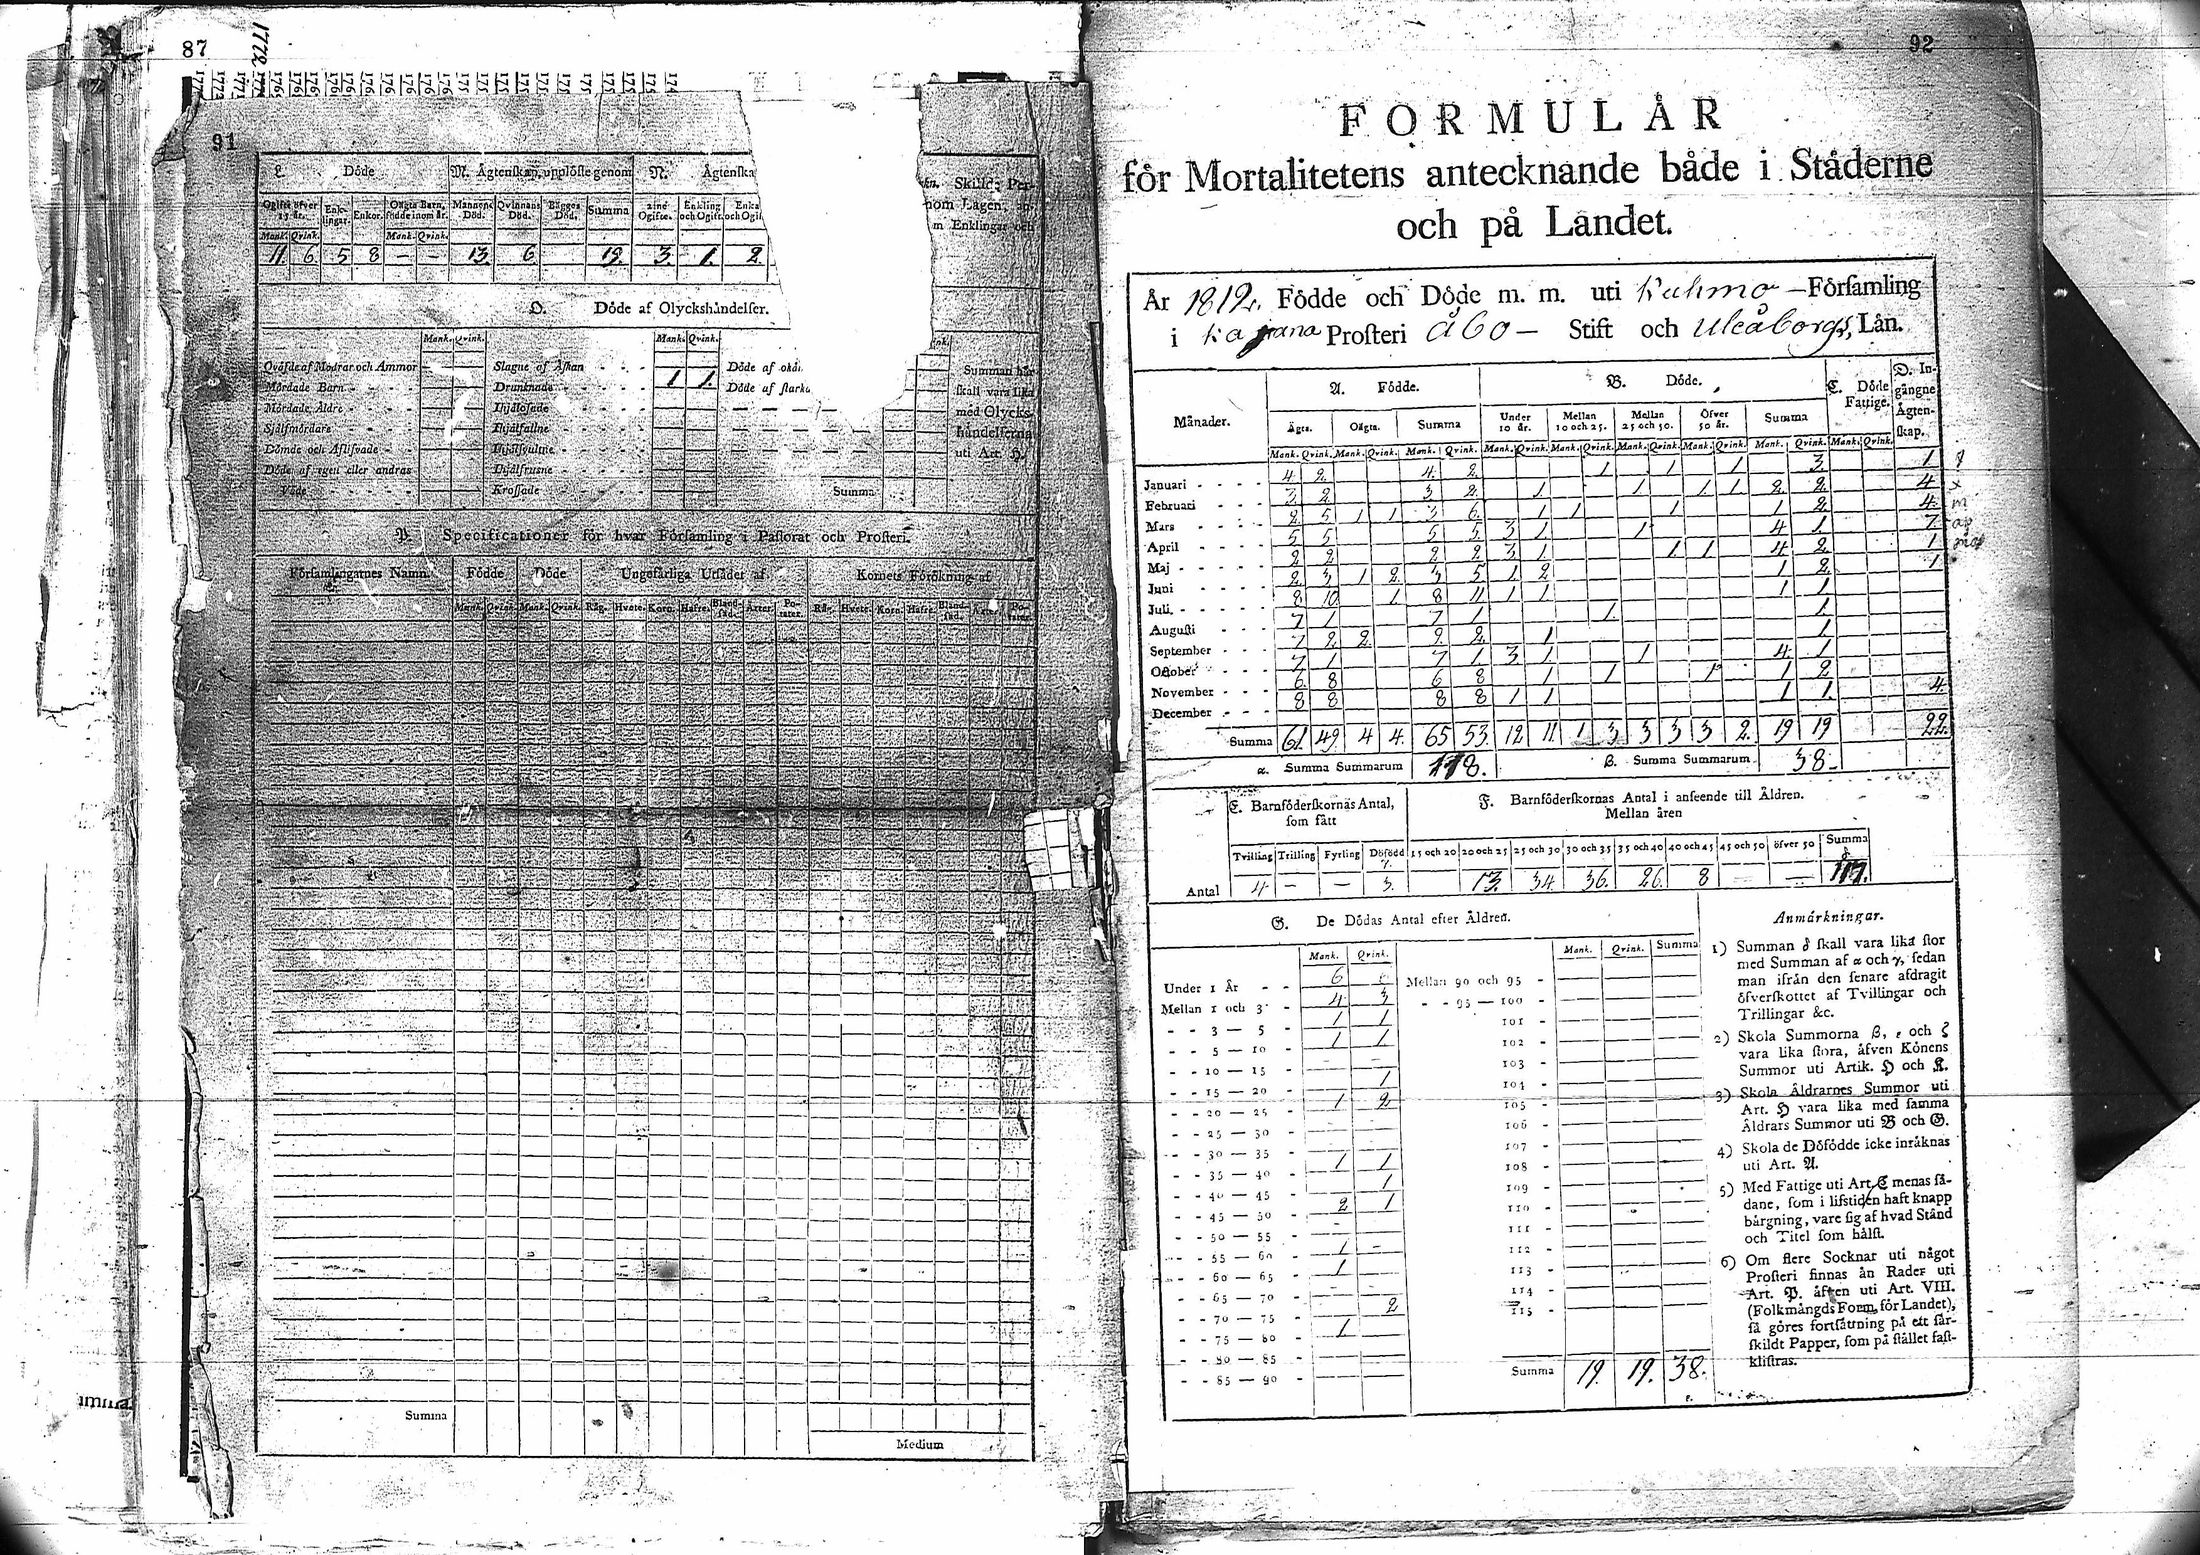 87
1772
91
L. Döde
M. Ägtenskap, upplöste genom
N. Ägtenska
Ogifte öfver 15 år. Enklingar. Enkor. Oägta Barn, födde inom år. Mannens Död. Qvinnans Död. Bägges Död. Summa
Ogifte. Enkling och Ogift. Enka och Ogif
Mank. Qvink. Mank. Qvink.
11 6 5 8 — — 13. 6. 19. 3. 1. 2.
Skilde Per-
nom Lagen, an-
m Enklingar och
O. Döde af Olyckshändelser.
Mank. Qvink. Mank. Qvink.
Qväfde af Mödrar och Ammor Slagne af Åskan - - - Döde af okän
Mördade Barn - - - Drunknade - - - 1 1. Döde af starka
Mördade Äldre - - - Ihjälfrösade
Självmördare - - - Ihjälfallne
Dömde och Aflifvade - Ihjälsvultne
Döde af egen eller andras Ihjälfrusne
Våde - - - Krossade Summa
Summan här
skall vara lika
med Olycks-
händelserna
uti Art. H.
P. Specificationer för hvar Församling i Pastorat och Prosteri.
Församlingarnes Namn. Födde Döde Ungefärliga Utsädet af Kornets Förökning af
Mank. Qvink. Mank. Qvink. Råg. Hvete. Korn. Hafre. Blandsäd. Ärter. Potater. Råg. Hvete. Korn. Hafre. Blandsäd. Ärter. Potater.
Summa
Medium
92
FORMULÄR
för Mortalitetens antecknande både i Städerne
och på Landet.
År 1812. Födde och Döde m. m. uti Kuhmo — Församling
i Kajana Prosteri Åbo — Stift och Uleåborgs, Län.
Månader. A. Födde. B. Döde. C. Döde Fattige. D. Ingångne Ägtenskap.
Ägta. Oägta. Summa Under 10 år. Mellan 10 och 25. Mellan 25 och 50. Öfver 50 år. Summa
Mank. Qvink. Mank. Qvink. Mank. Qvink. Mank. Qvink. Mank. Qvink. Mank. Qvink. Mank. Qvink. Mank. Qvink. Mank. Qvink.
Januari - - - - 4 2. 4. 2. 1 1 1 3. 1
Februari - - - 3 2. 3. 2. 1 1 1 1 2. 2. 4
Mars - - - - 2 5 1 1 3 6. 1 1 1 1 2. 4.
April - - - - 5 5 5 5. 3 1 1 4 1 7.
Maj - - - - 2 2 2 2 3 1. 1 1 4 2. 1
Juni - - - - 2. 3 1 2. 3 5 1 2 1 2. 1
Juli. - - - - 8 10. 1 8 11 1 1 1 1
Augusti - - - 7 1 7 1 1. 1.
September - - - 7 2 2. 9. 2. 1 1.
October - - - 7 1 7 1. 3 1. 1 4 1
November - - - 6. 8 6 8 1 1 1 1 2
December - - - 8 8 8 8 1 1 1 1. 4.
Summa 61. 49. 4 4. 65 53. 12 11 1 3 3 3 3 2. 19 19 22.
α. Summa Summarum 118. β. Summa Summarum 38
E. Barnföderskornas Antal, som fått
F. Barnföderskornas Antal i anseende till Åldren.
Mellan åren
Tvilling Trilling Fyrling Dödfödd 15 och 20 20 och 25 25 och 30 30 och 35 35 och 40 40 och 45 45 och 50 öfver 50 Summa
γ. δ
Antal 4 — — 3. 13. 34 36. 26. 8 — — 117.
G. De Dödas Antal efter Åldren.
Mank. Qvink. Mank. Qvink. Summa
Under 1 År - - 6 Mellan 90 och 95 -
Mellan 1 och 3 - 4 3 - - 95 — 100 -
- - 3 — 5 - 1 1 101 -
- - 5 — 10 - 1 1 102 -
- - 10 — 15 - 103 -
- - 15 — 20 - 1 104 -
- - 20 — 25 - 1 2 105 -
- - 25 — 30 - 106 -
- - 30 — 35 - 107 -
- - 35 — 40 - 1 1 108 -
- - 40 — 45 - 1 109 -
- - 45 — 50 - 2 1 110 -
- - 50 — 55 - 111 -
- - 55 — 60 - 1 - 112 -
- - 60 — 65 - 1 113 -
- - 65 — 70 - 114 -
- - 70 — 75 - 2 115 -
- - 75 — 80 - 1
- - 80 — 85 -
- - 85 — 90 -
Summa 19. 19. 38.
Anmärkningar.
1) Summan δ skall vara lika stor
med Summan af α och γ, sedan
man ifrån den senare afdragit
öfverskottet af Tvillingar och
Trillingar &c.
2) Skola Summorna β, ε och ζ
vara lika stora, äfven Könens
Summor uti Artik. H och K.
3) Skola Åldrarnes Summor uti
Art. H vara lika med samma
Åldrars Summor uti B och G.
4) Skola de Dödfödde icke inräknas
uti Art. A.
5) Med Fattige uti Art. C menas så-
dane, som i lifstiden haft knapp
bärgning, vare sig af hvad Stånd
och Titel som hälst.
6) Om flere Socknar uti något
Prosteri finnas än Rader uti
Art. P. äfven uti Art. VIII.
(Folkmängds Form. för Landet),
så göres fortsättning på ett sär-
skildt Papper, som på stället fast-
klistras.